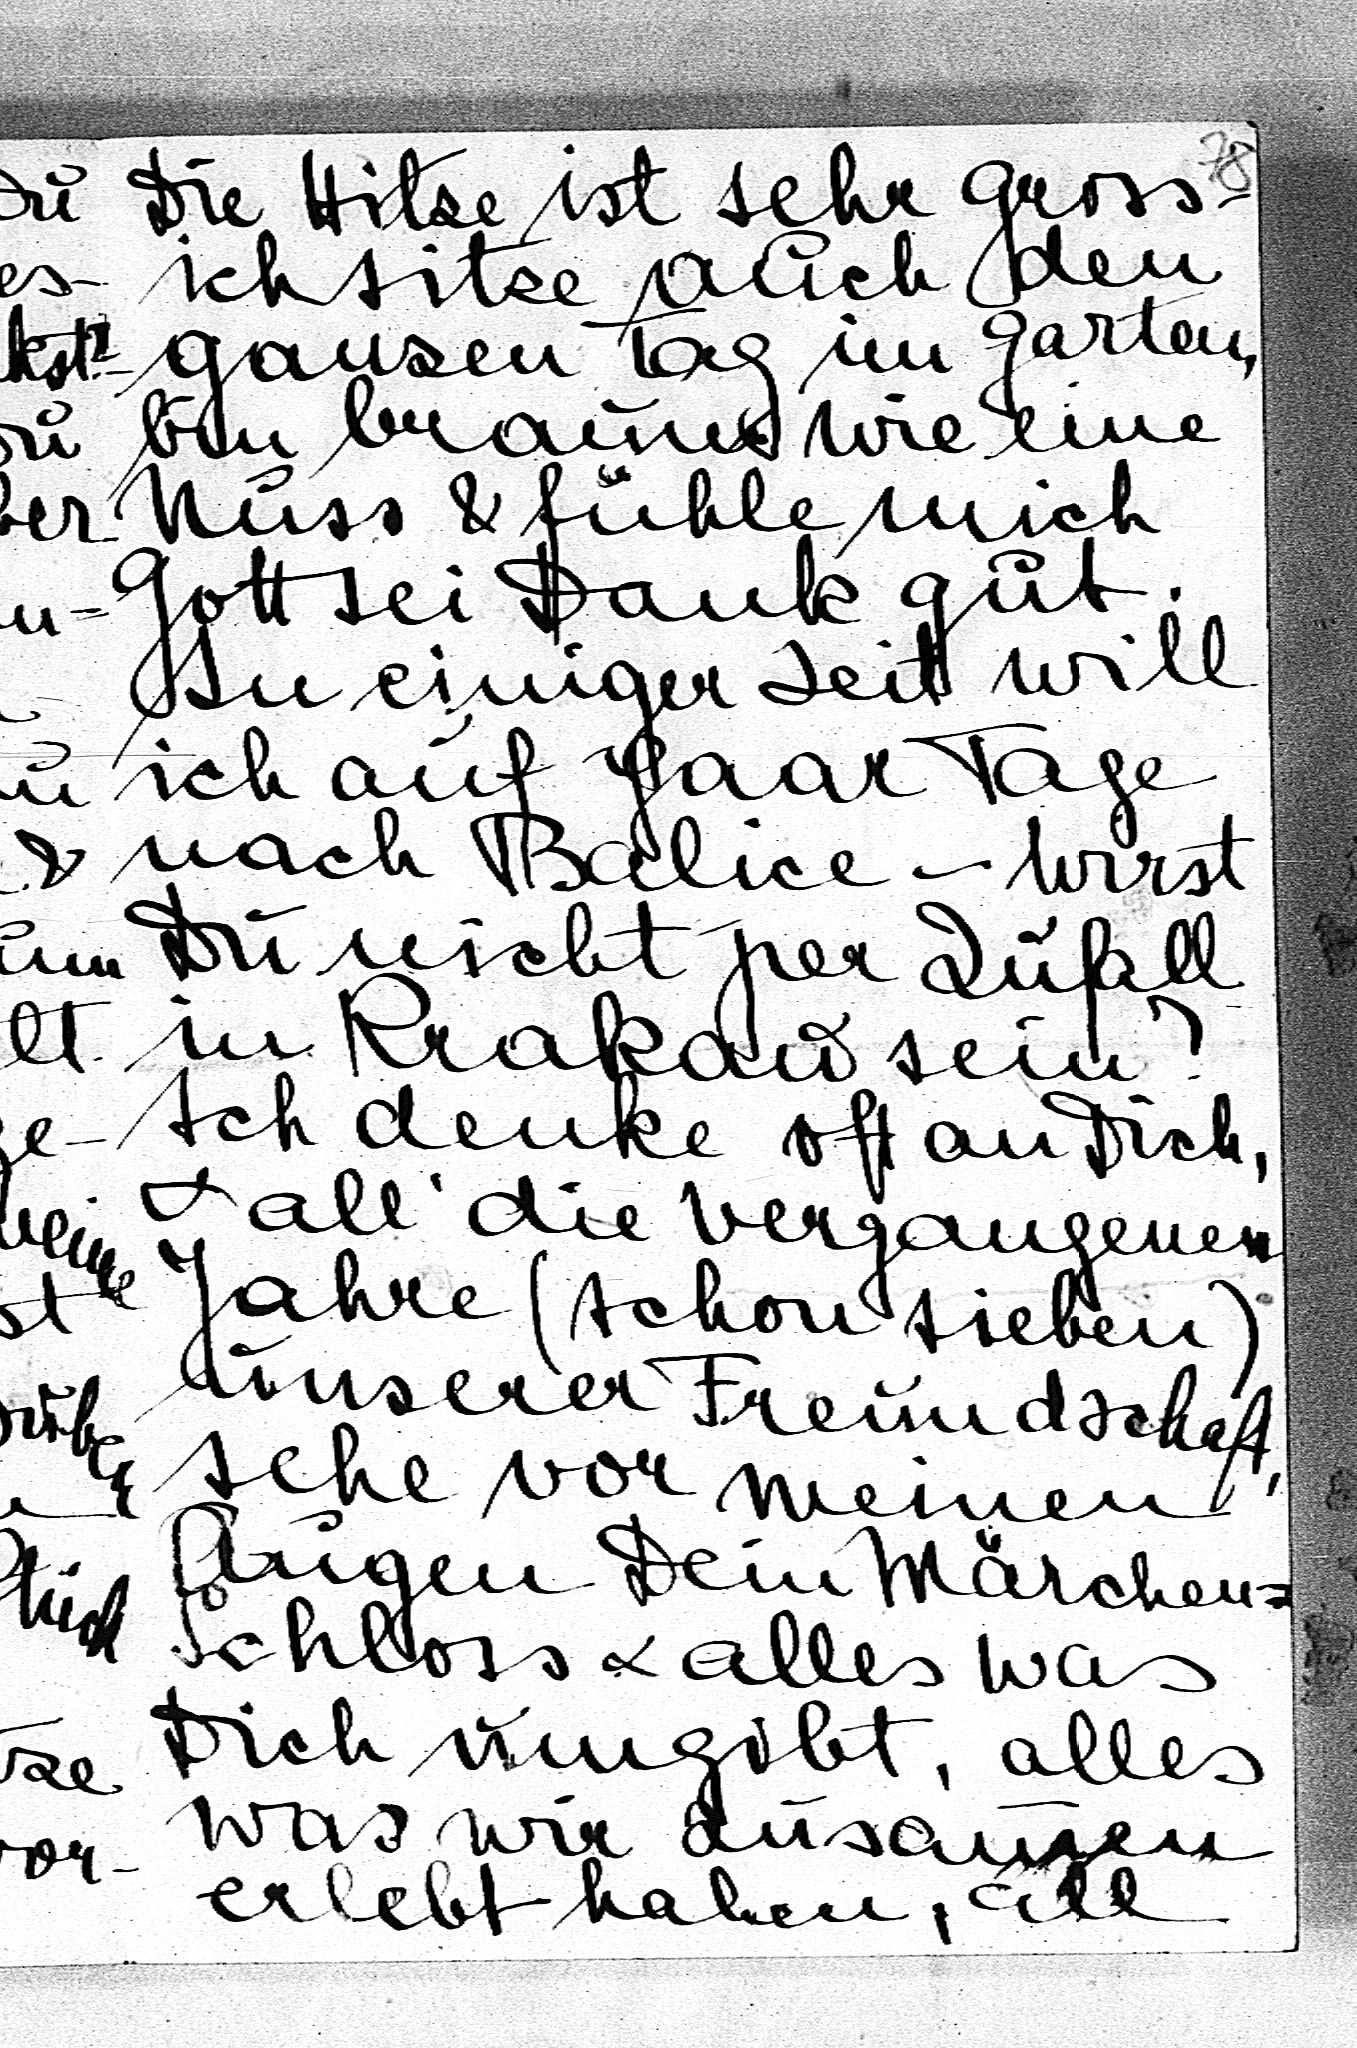 78
Die Hitze ist sehr gross-
ich sitze auch den
ganzen Tag im Garten,
bin braun wie eine
Nuss & fühle mich
Gott sei Dank gut.
In einiger Zeit will
ich auf paar Tage
nach Balice - wirst
Du nicht per Zufall
in Krakau sein?
Ich denke oft an Dich,
& all' die vergangenen
Jahre (schon sieben)
unserer Freundschaft,
sehe vor meinen
Augen Dein Märchen=
Schloss & alles was
Dich umgibt, alles
was wir zusam̅en
erlebt haben, all